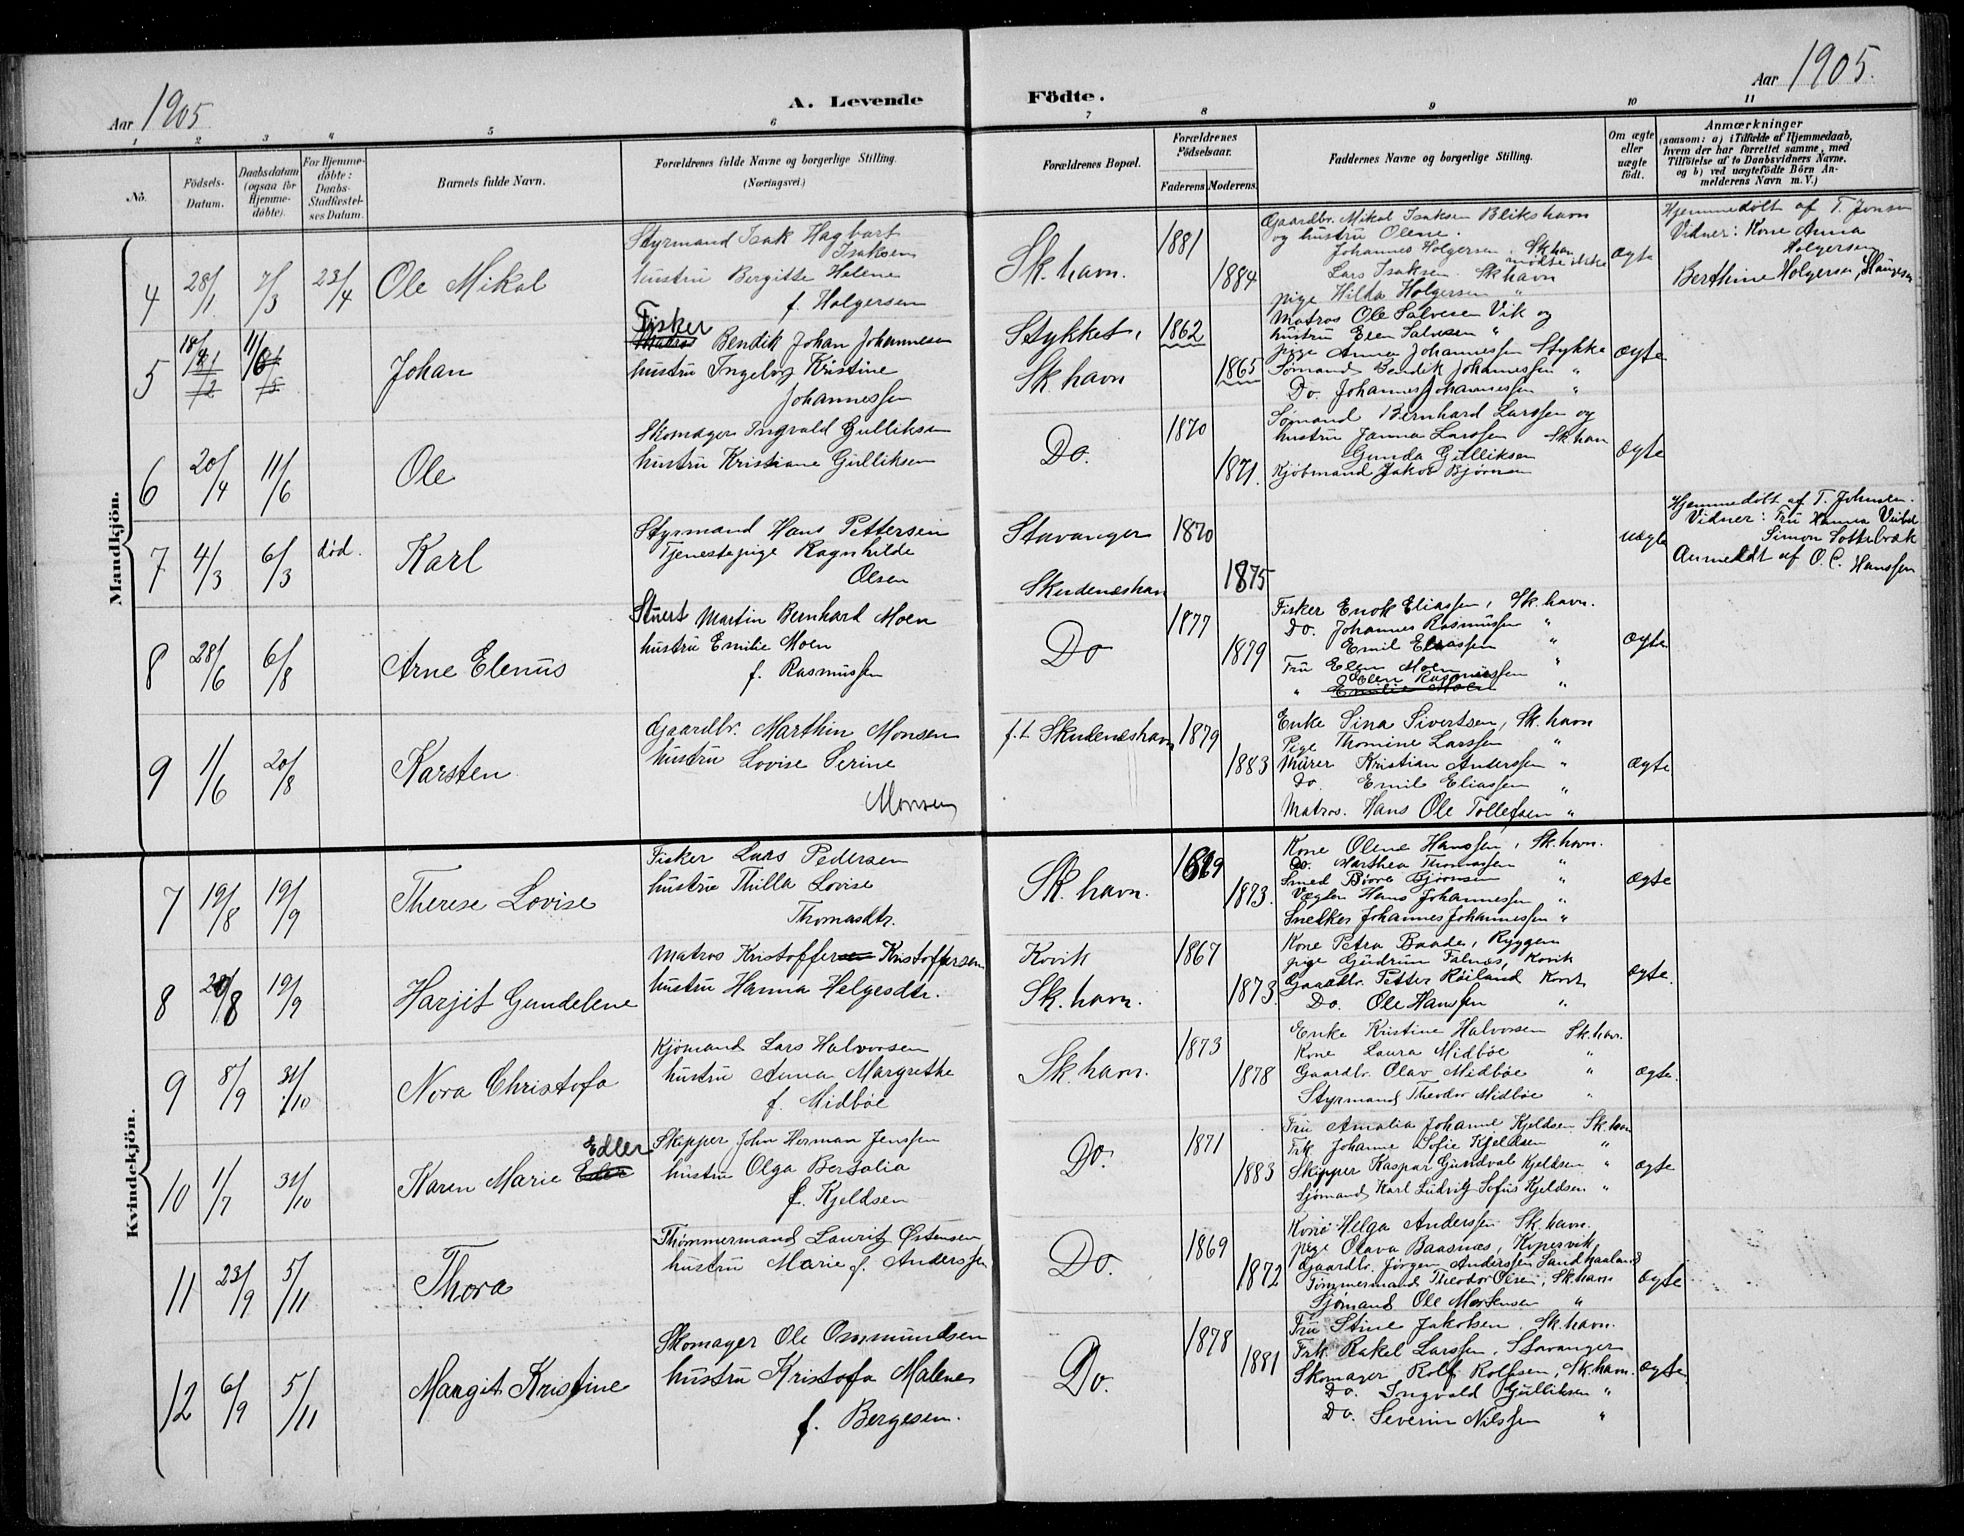 Aar 1905.
A. Levende Födte.
Aar 1905.
1 2 3 4 5 6 7 8 9 10 11
No.
Födsels-Datum.
Daabsdatum (ogsaa for Hjemme-döbte).
For Hjemme-döbte: Daabs-Stadfæstel-ses Datum.
Barnets fulde Navn.
Forældrenes fulde Navne og borgerlige Stilling.
(Næringsvei.)
Forældrenes Bopæl.
Forældrenes Födselsaar.
Faderens. Moderens.
Faddernes Navne og borgerlige Stilling.
Om ægte eller uægte födt.
Anmærkninger
(saasom: a) i Tilfælde af Hjemmedaab,
hvem der har forrettet samme, med
Tilföielse af to Daabsvidners Navne.
og b) ved uægtefödte Börn An-
melderens Navn m. V.)
Mandkjön.
4 28/1 7/3 23/4 Ole Mikal
Styrmand Isak Hagbart
Isaksen
hustru Bergitte Helene
f. Holgersen
Sk.havn. 1881 1884
Gaardbr. Mikal Isaksen Blikshavn
og hustru Olene.
Johannes Holgersen Sk.havn mødte ikke
Lars Isaksen. Sk.havn
pige Hilda Holgersen "
ægte
Hjemmedøbt af T. Jonsen
Vidner: Kone Anna
Holgersen
Berthine Holgersen,
5 18/2 11/6 Johan
Fisker
Matros Bendik Johan Johannesen
hustru Ingeborg Kristine
Johannessen
Stykket, 1862
Sk.havn 1865
Matros Ole Salvesen Vik og
hustru Elen Salvesen "
pige Anna Johannessen Stykke
Sømand Bendik Johannessen "
Do. Johannes Johannessen "
ægte
6 20/4 11/6 Ole
Skomager Ingvald Gulliksen
hustru Kristiane Gulliksen
Do. 1870 1871.
Sømand Bernhard Larssen og
hustru Janna Larssen Sk.havn
Gunda Gulliksen
Kjøbmand Jakob Bjørnsen
ægte
7 4/3 6/3 død. Karl
Styrmand Hans Pettersen
Tjenestepige Ragnhilde
Olsen
Stavanger 1870
Skudeneshavn 1875
uægte
Hjemmedøbt af T. Johnsen.
Vidner: Fru Hanna
Simon
Anmeldt af O. C. Hanssen
8 28/6 6/8 Arne Elenus
Stuert Martin Bernhard Moen
hustru Emilie Moen
f. Rasmussen
Do 1877 1879
Fisker Enok Eliassen, Sk.havn.
Do. Johannes Rasmussen "
Emil Eliassen "
Fru Elen Moen "
Elen Rasmussen
" Emilie Moen "
ægte
9 1/6 20/8 Karsten
Gaardbr. Marthin Monsen
hustru Lovise Serine
Monsen
f.t. Skudeneshavn 1879 1883
Enke Sina Sivertsen, Sk.havn
Pige Thomine Larssen "
Murer Kristian Anderssen "
Do. Emil Eliassen "
Matros. Hans Ole Tollefsen "
ægte
Kvindekjön.
7 19/8 19/9 Therese Lovise
Fisker Lars Pedersen
hustru Thilla Lovise
Thomasdtr.
Sk.havn. 1869 1873.
Kone Olene Hanssen, Sk.havn.
Do. Marthea Thomassen "
Smed Børre Bjørnsen "
Vægter Hans Johannessen "
Snekker Johannes Johannessen "
ægte
8 20/8 19/9 Harjit Gundelene
Matros Kristoffersen Kristoffersen
hustru Hanna Helgesdtr.
Kovik 1867
Sk.havn. 1873.
Kone Petra Baade, Ryggen
pige Gudrun Falnes, Kovik
Gaardbr. Petter Røiland Kovik
Do. Ole Hanssen "
ægte.
9 8/9 31/10 Nora Christofa
Kjømand Lars Halvorsen
hustru Anna Margrethe
f. Midbøe
Sk.havn. 1873 1878
Enke Kristine Halvorsen Sk.havn.
Kone Laura Midbøe "
Gaardbr. Olav Midbøe "
Styrmand Theodor Midbøe "
ægte.
10 1/7 31/10 Karen Marie Edler
Skipper John Herman Jenssen
hustru Olga Bersalia
f. Kjeldsen
Do. 1871 1883
Fru Amalia Johanne Kjeldsen, Sk.havn
Frk. Johanne Sofie Kjeldsen "
Skipper Kaspar Gundval Kjeldsen "
Sjømand Karl Ludvig Sofus Kjeldsen "
ægte
11 23/9 5/11 Thora
Thømmermand Lauritz Østensen
hustru Marie f. Anderssen
Do. 1869 1872
Kone Helga Anderssen Sk.havn.
pige Olava Baasnæs, Kopervik,
Gaardbr. Jørgen Anderssen Sandhaaland
Tømmermand Theodor Olsen, Sk.havn
Sjømand Ole Mortensen "
ægte
12 6/9 5/11 Margit Kristine
Skomager Ole Ommundsen
hustru Kristofa Malene
f. Bergesen.
Do. 1878 1881
Fru Stine Jakobsen. Sk.havn.
Frk. Rakel Larssen, Stavanger
Skomager Rolf Rolfsen, Sk.havn.
Do. Ingvald Gulliksen "
Do. Severin Nilssen "
ægte